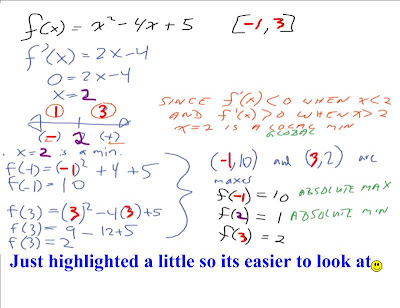 f(x) = x² - 4x + 5 [-1, 3]
f'(x) = 2x - 4
0 = 2x - 4
x = 2
1 3
(-) 2 (+)
x = 2 is a min.
SINCE f'(x) < 0 WHEN x < 2
AND f'(x) > 0 WHEN x > 2
x = 2 IS A LOCAL MIN
GLOBAL
f(-1) = (-1)² + 4 + 5
f(-1) = 10
f(3) = (3)² - 4(3) + 5
f(3) = 9 - 12 + 5
f(3) = 2
(-1, 10) and (3, 2) are
maxes
f(-1) = 10 ABSOLUTE MAX
f(2) = 1 ABSOLUTE MIN
f(3) = 2
Just highlighted a little so its easier to look at